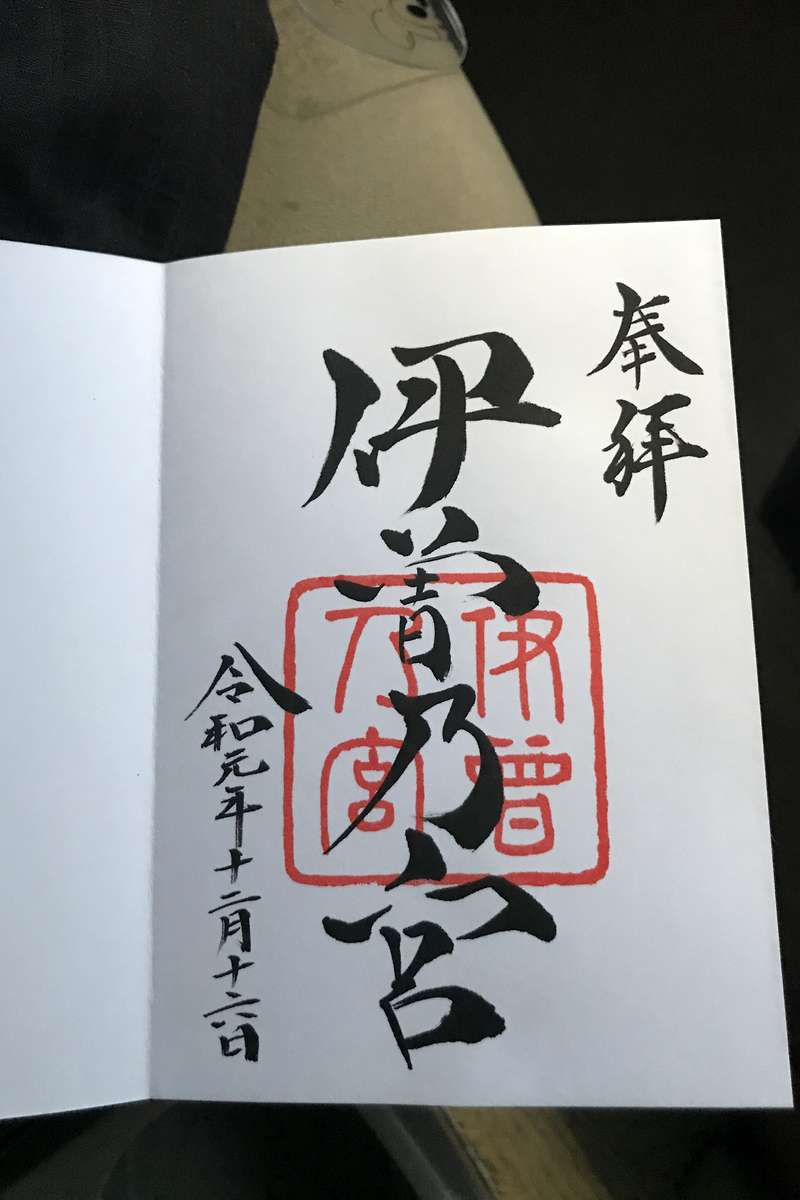 奉拝
伊曽乃宮
伊曽乃宮
令和元年十二月十六日